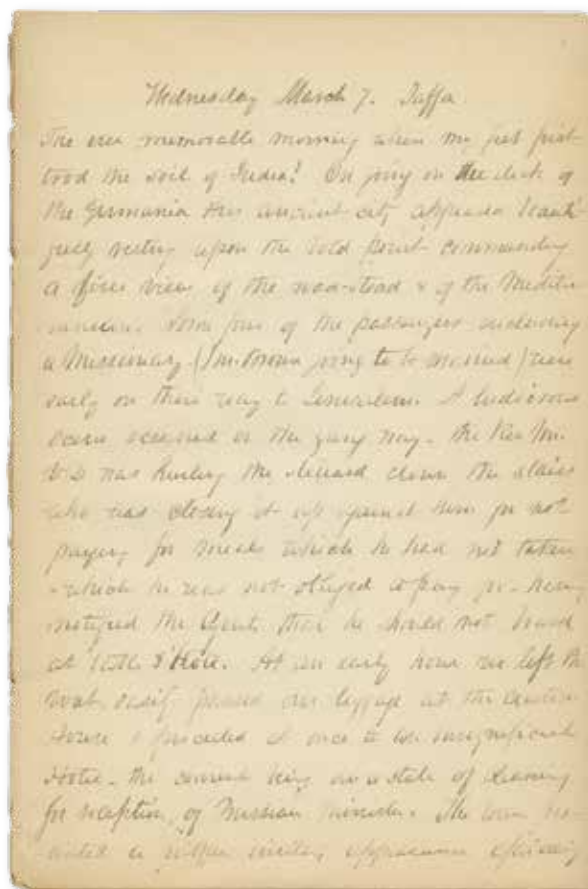 Wednesday March 7. Jaffa
The ever memorable morning when my feet first
trod the soil of Judea! On going on the deck of
the Germania this ancient city appeared beauti
fully resting upon the bold point commanding
a fine view of the road-stead & of the Mediter
ranean. Some four of the passengers including
a Missionary (going to be married) were
early on their way to Jerusalem. A ludicrous
scene occurred on the gang way. the Rev Mr.
was hurling the down the stairs
who was closing it up against him for not
paying for meals which he had not taken
which he was not obliged to pay for having
notified the that he should not
at table d'Hote. At an early hour we left the
boat easily passed our luggage at the custom
house & proceeded at once to an insignificant
Hotel. the convent being in a state of cleaning
for reception of Russian minister. The town
a rather appearance